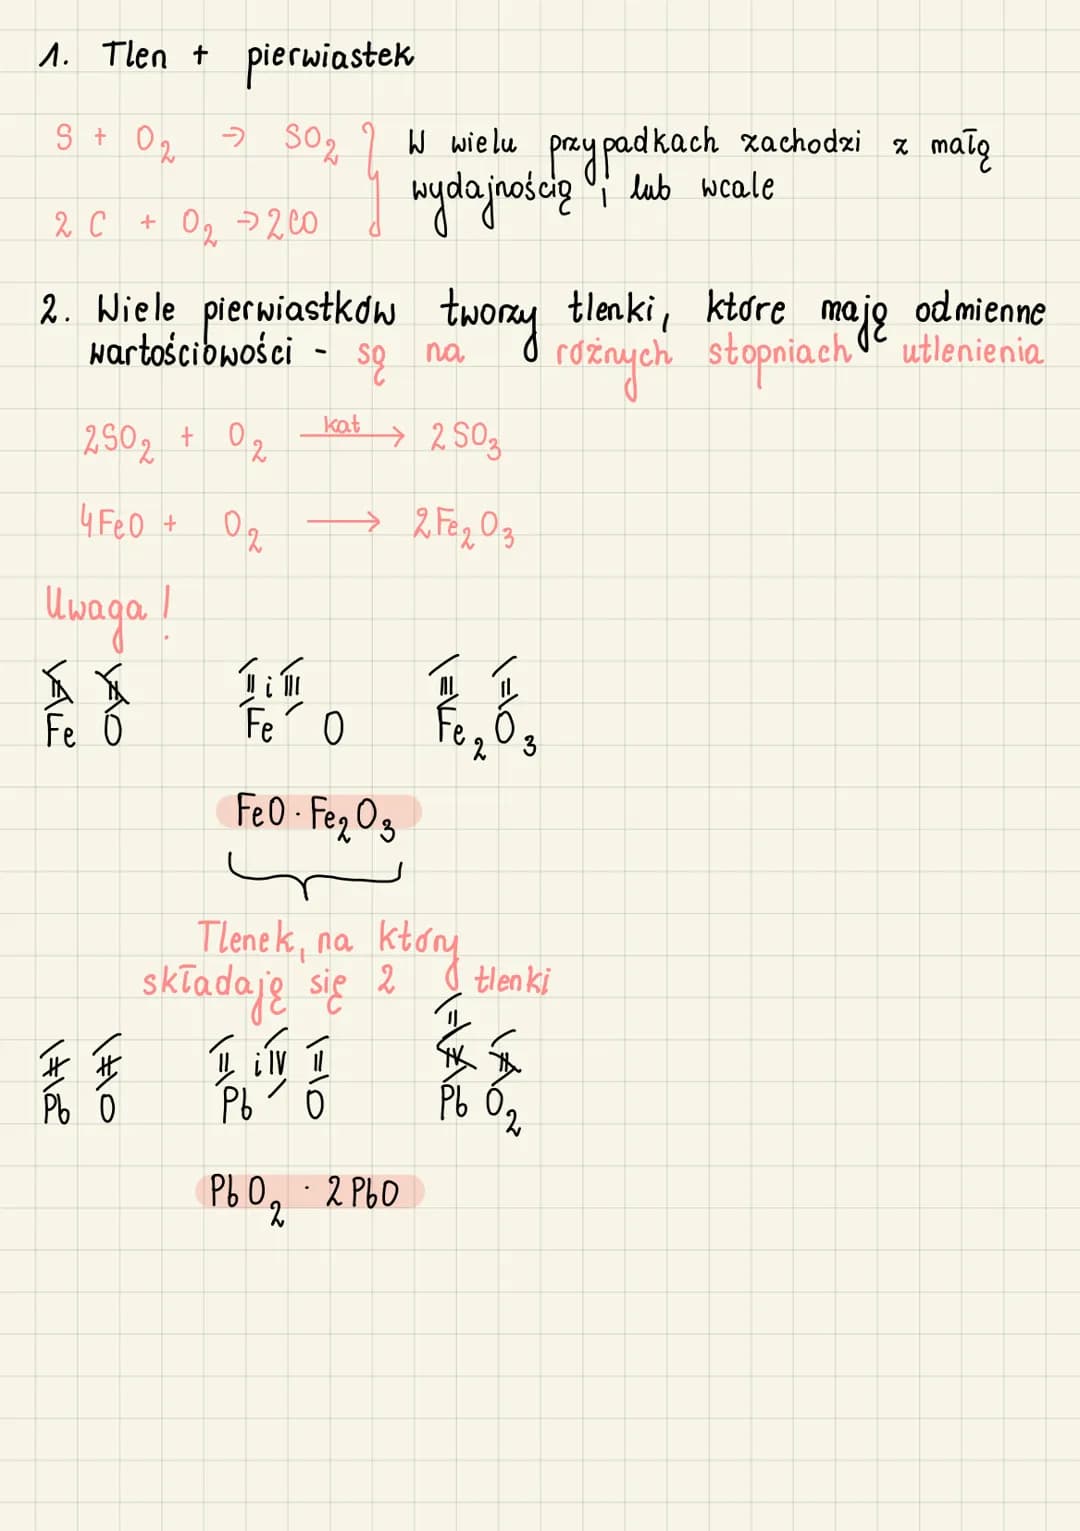 1. Tlen + pierwiastek
S + O₂ → SO₂
2C + O₂ → 2CO
W wielu przypadkach zachodzi z małą
wydajnością, lub wcale
2. Wiele pierwiastków tworzy tlenki, które mają odmienne
wartościowości - są na różnych stopniach utlenienia
2SO₂ + O₂ kat → 2SO₃
4FeO + O₂ → 2Fe₂O₃
Uwaga!
II II II i III III II
Fe O Fe O Fe₂ O₃
FeO · Fe₂O₃
Tlenek, na który
składają się 2 tlenki
II
II II II i IV II IV II
Pb O Pb O Pb O₂
PbO₂ · 2PbO